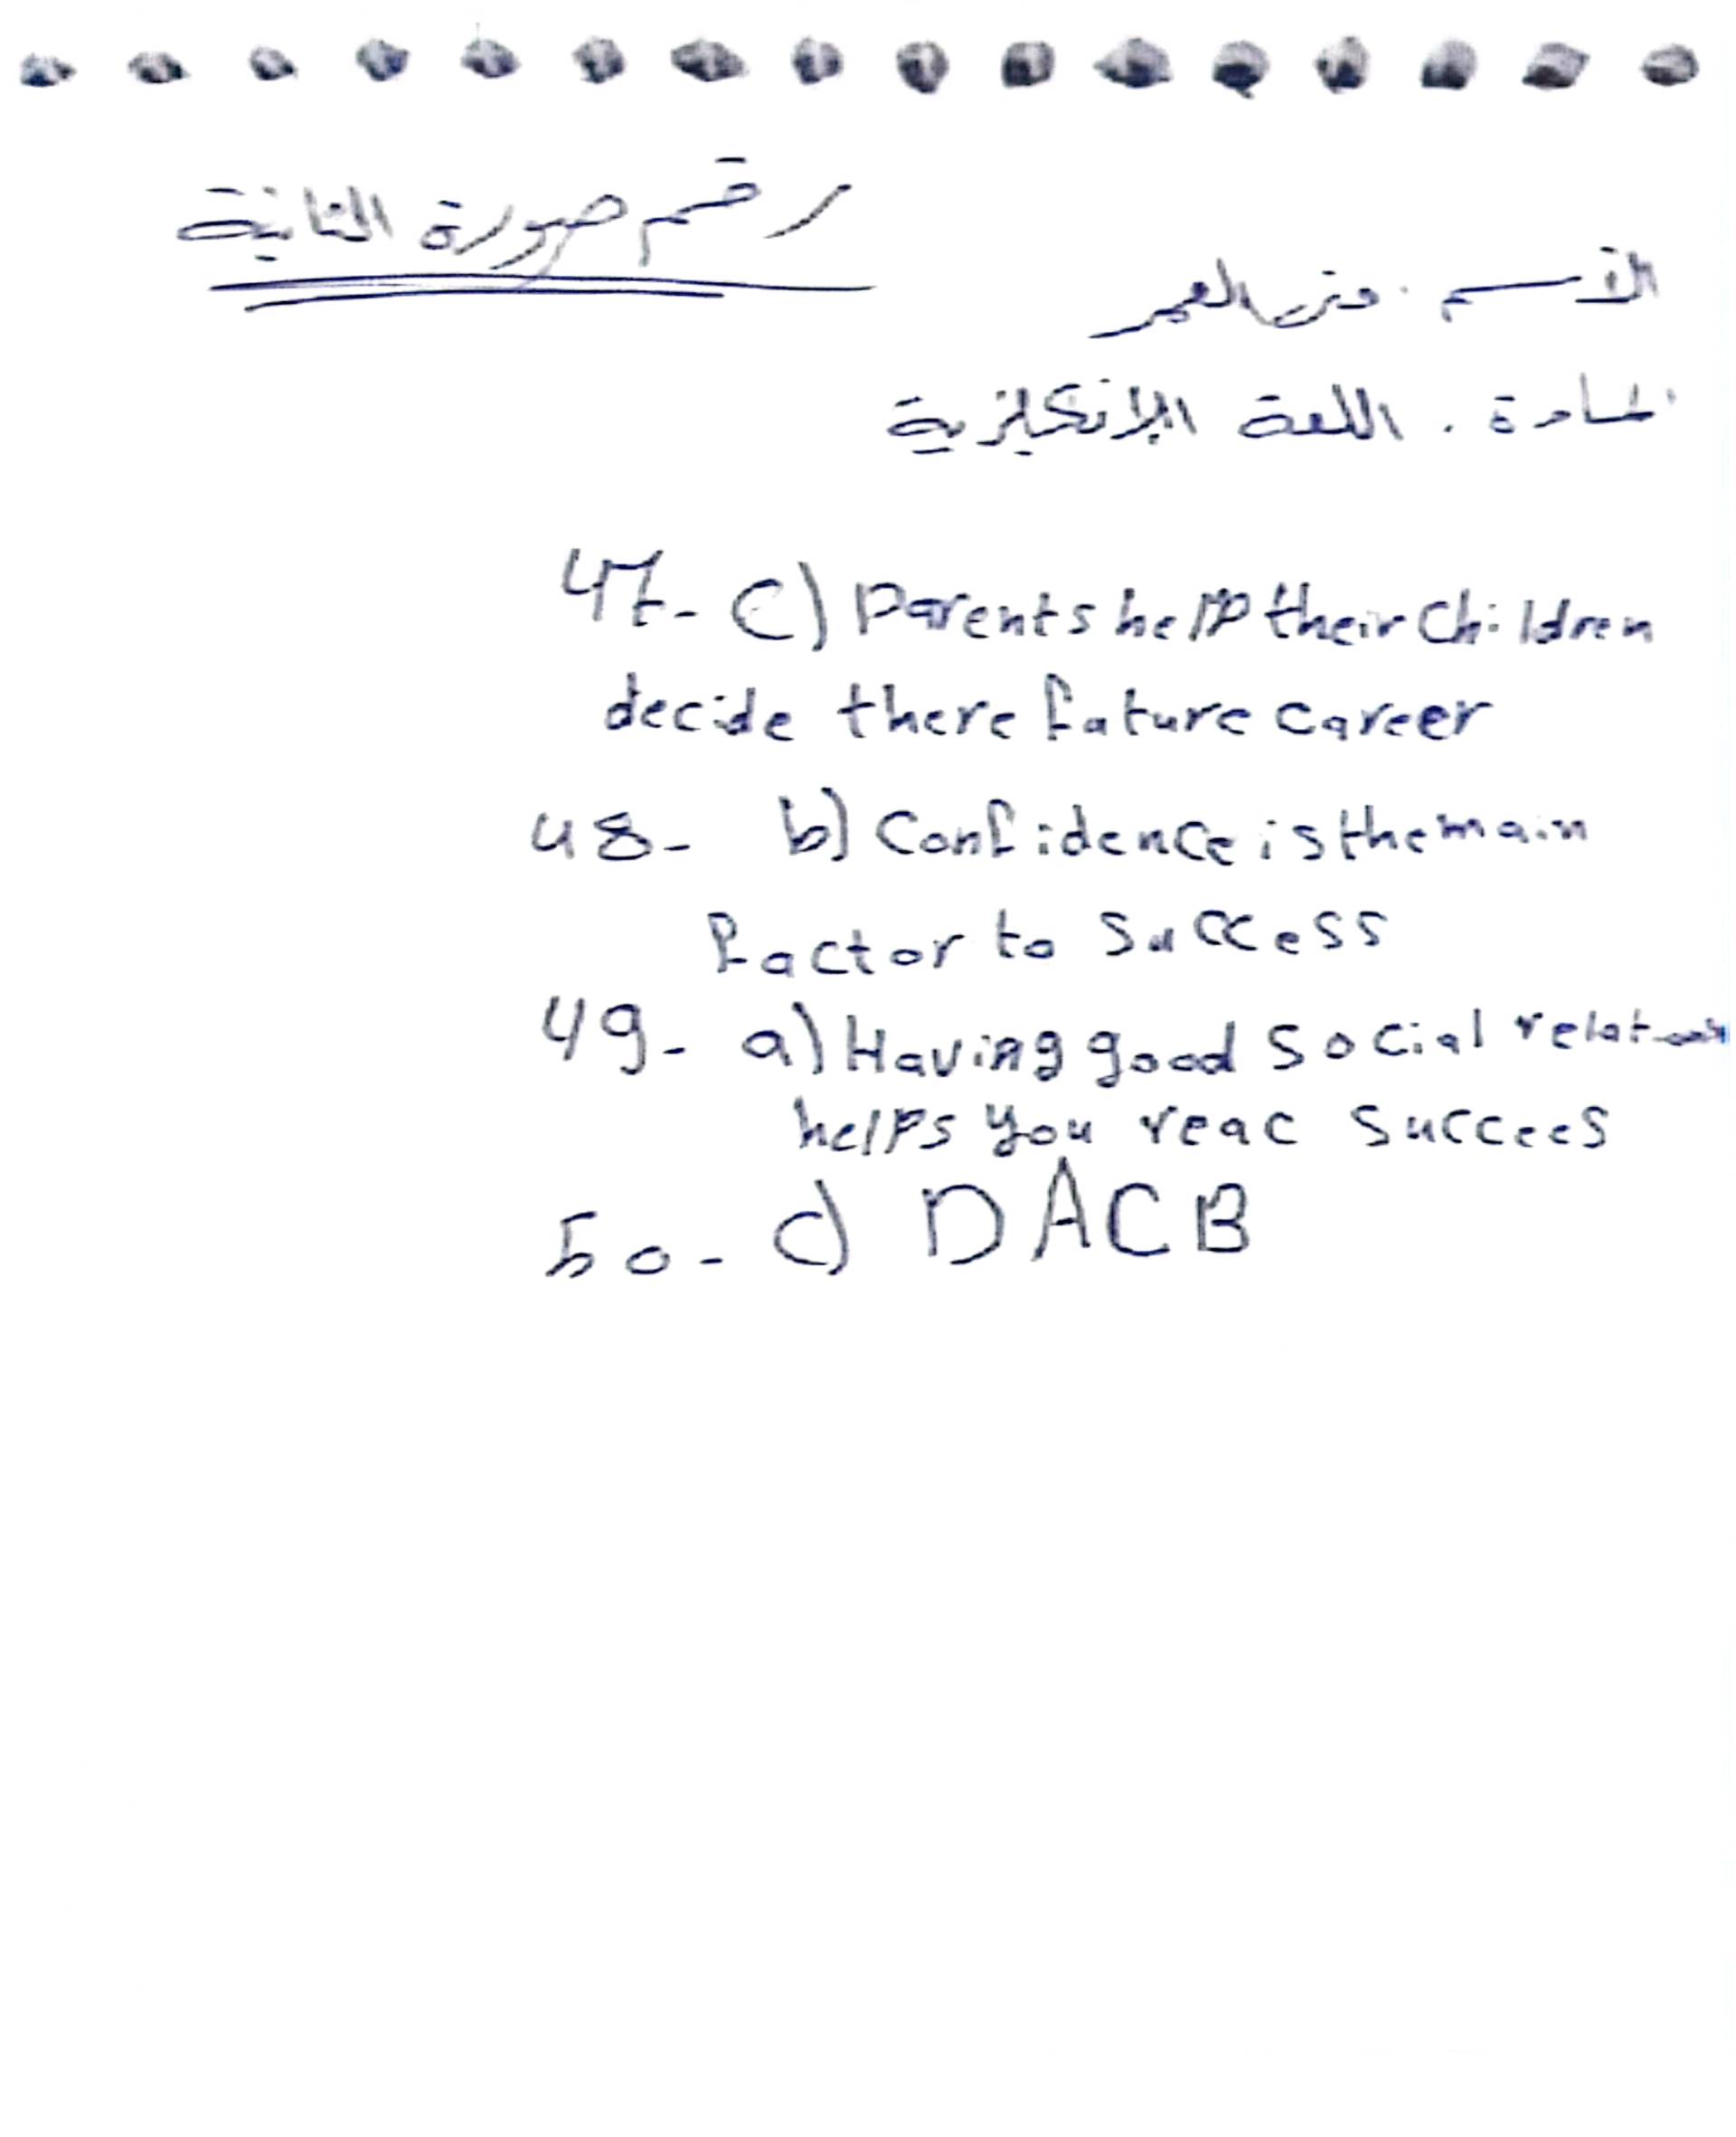 رقم صورة الثانية
الأسم .
المادة . اللغة الإنكليزية
47- C) Parents help their Children
decide there future career
48- b) Confidence is the main
Factor to Success
49- a) Having good Social relations
helps you reac Succees
50- c) DACB